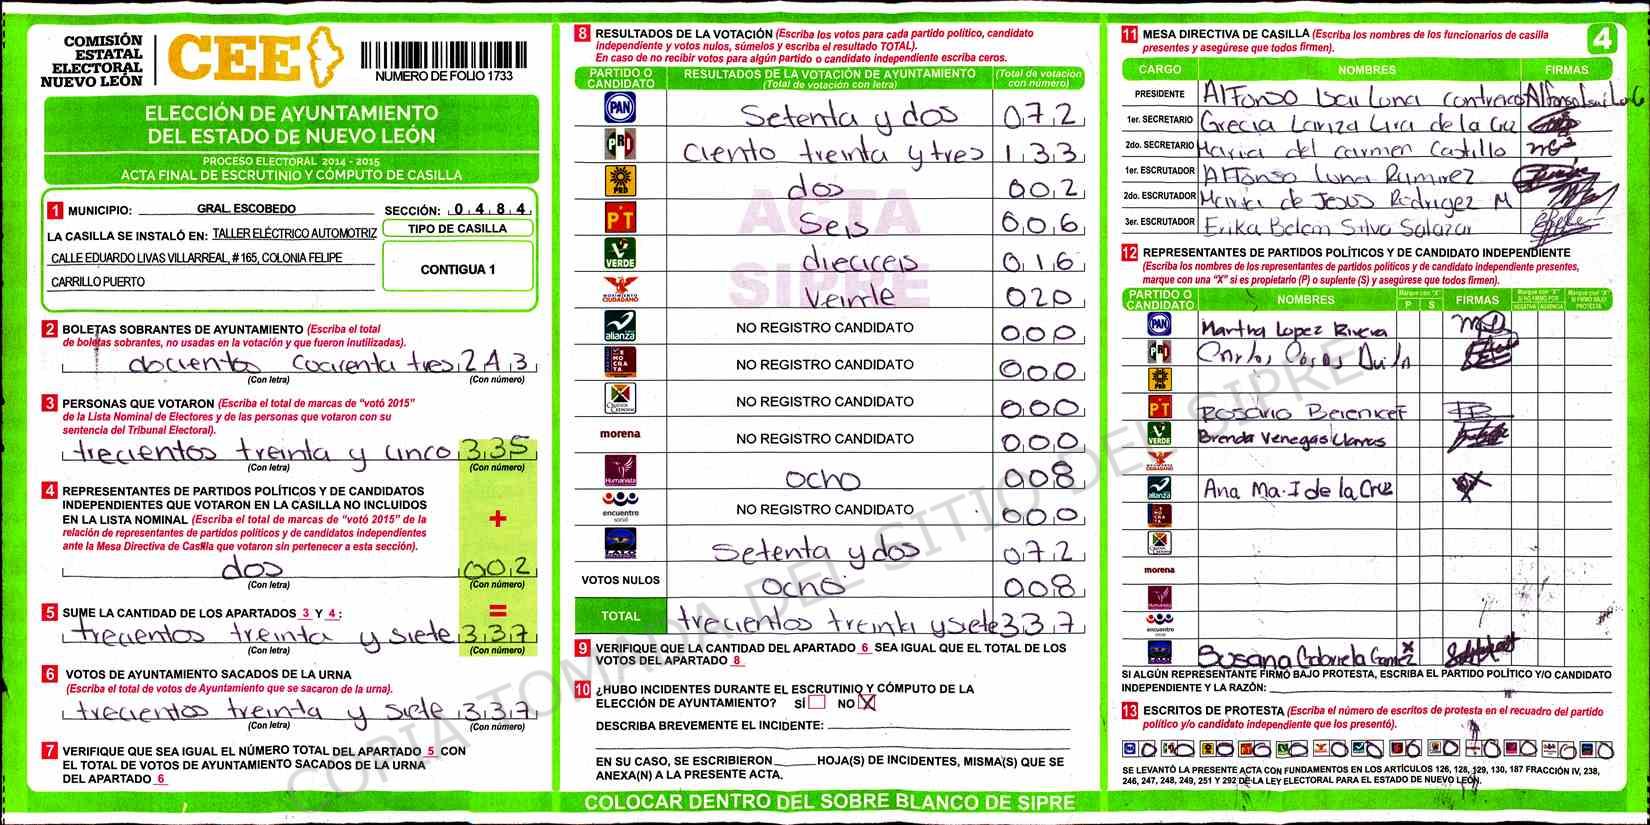 COMISIÓN
ESTATAL
ELECTORAL
NUEVO LEÓN
CEE
NUMERO DE FOLIO 1733
ELECCIÓN DE AYUNTAMIENTO
DEL ESTADO DE NUEVO LEÓN
PROCESO ELECTORAL 2014 - 2015
ACTA FINAL DE ESCRUTINIO Y CÓMPUTO DE CASILLA
1 MUNICIPIO: GRAL. ESCOBEDO SECCIÓN: 0484
LA CASILLA SE INSTALÓ EN: TALLER ELÉCTRICO AUTOMOTRIZ
CALLE EDUARDO LIVAS VILLARREAL, # 165, COLONIA FELIPE
CARRILLO PUERTO
TIPO DE CASILLA
CONTIGUA 1
2 BOLETAS SOBRANTES DE AYUNTAMIENTO (Escriba el total
de boletas sobrantes, no usadas en la votación y que fueron inutilizadas).
docientos cocirenta tres 243
(Con letra) (Con número)
3 PERSONAS QUE VOTARON (Escriba el total de marcas de "votó 2015"
de la Lista Nominal de Electores y de las personas que votaron con su
sentencia del Tribunal Electoral).
trecientos treinta y cinco 335
(Con letra) (Con número)
4 REPRESENTANTES DE PARTIDOS POLÍTICOS Y DE CANDIDATOS
INDEPENDIENTES QUE VOTARON EN LA CASILLA NO INCLUIDOS
EN LA LISTA NOMINAL (Escriba el total de marcas de "votó 2015" de la
relación de representantes de partidos políticos y de candidatos independientes
ante la Mesa Directiva de Casilla que votaron sin pertenecer a esta sección).
+
dos 002
(Con letra) (Con número)
5 SUME LA CANTIDAD DE LOS APARTADOS 3 Y 4: =
trecientos treinta y siete 337
(Con letra) (Con número)
6 VOTOS DE AYUNTAMIENTO SACADOS DE LA URNA
(Escriba el total de votos de Ayuntamiento que se sacaron de la urna).
trecientos treinta y siete 337
(Con letra) (Con número)
7 VERIFIQUE QUE SEA IGUAL EL NÚMERO TOTAL DEL APARTADO 5 CON
EL TOTAL DE VOTOS DE AYUNTAMIENTO SACADOS DE LA URNA
DEL APARTADO 6
8 RESULTADOS DE LA VOTACIÓN (Escriba los votos para cada partido político, candidato
independiente y votos nulos, súmelos y escriba el resultado TOTAL).
En caso de no recibir votos para algún partido o candidato independiente escriba ceros.
PARTIDO O CANDIDATO RESULTADOS DE LA VOTACIÓN DE AYUNTAMIENTO (Total de votación con letra) (Total de votación con número)
PAN Setenta y dos 072
PRI ciento treinta y tres 133
PRD dos 002
PT Seis 006
VERDE dieciceis 016
MOVIMIENTO CIUDADANO Veinte 020
alianza NO REGISTRO CANDIDATO 000
DEMOCRATA NO REGISTRO CANDIDATO 000
NO REGISTRO CANDIDATO 000
morena NO REGISTRO CANDIDATO 000
Humanista ocho 008
encuentro social NO REGISTRO CANDIDATO 000
Setenta y dos 072
VOTOS NULOS ocho 008
TOTAL trecientos treinta y siete 337
ACTA
SIPRE
9 VERIFIQUE QUE LA CANTIDAD DEL APARTADO 6 SEA IGUAL QUE EL TOTAL DE LOS
VOTOS DEL APARTADO 8
10 ¿HUBO INCIDENTES DURANTE EL ESCRUTINIO Y CÓMPUTO DE LA
ELECCIÓN DE AYUNTAMIENTO? SÍ NO X
DESCRIBA BREVEMENTE EL INCIDENTE:
EN SU CASO, SE ESCRIBIERON HOJA(S) DE INCIDENTES, MISMA(S) QUE SE
ANEXA(N) A LA PRESENTE ACTA.
COLOCAR DENTRO DEL SOBRE BLANCO DE SIPRE
11 MESA DIRECTIVA DE CASILLA (Escriba los nombres de los funcionarios de casilla
presentes y asegúrese que todos firmen).
4
CARGO NOMBRES FIRMAS
PRESIDENTE Alfonso Luna Contreras
1er. SECRETARIO Grecia Lariza Lira de la Cruz
2do. SECRETARIO Maria del Carmen Castillo
1er. ESCRUTADOR Alfonso Luna Ramirez
2do. ESCRUTADOR Maria de Jesus Rodrigez M
3er. ESCRUTADOR Erika Belem Silva Salazar
12 REPRESENTANTES DE PARTIDOS POLÍTICOS Y DE CANDIDATO INDEPENDIENTE
(Escriba los nombres de los representantes de partidos políticos y de candidato independiente presentes,
marque con una "X" si es propietario (P) o suplente (S) y asegúrese que todos firmen).
PARTIDO O CANDIDATO NOMBRES P S FIRMAS
PAN Martha Lopez Rivera
PRI Carlos
PRD
PT Rosario
VERDE Brenda Venegas Llamas
alianza Ana Ma. I de la Cruz
morena
Humanista
encuentro social
Susana Gabriela Gomez X
SI ALGÚN REPRESENTANTE FIRMÓ BAJO PROTESTA, ESCRIBA EL PARTIDO POLÍTICO Y/O CANDIDATO
INDEPENDIENTE Y LA RAZÓN:
13 ESCRITOS DE PROTESTA (Escriba el número de escritos de protesta en el recuadro del partido
político y/o candidato independiente que los presentó).
0 0 0 0 0 0 0 0 0 0 0 0 0
SE LEVANTÓ LA PRESENTE ACTA CON FUNDAMENTOS EN LOS ARTÍCULOS 126, 128, 129, 130, 187 FRACCIÓN IV, 238,
246, 247, 248, 249, 251 Y 292 DE LA LEY ELECTORAL PARA EL ESTADO DE NUEVO LEÓN.
COPIA TOMADA DEL SITIO DEL SIPRE